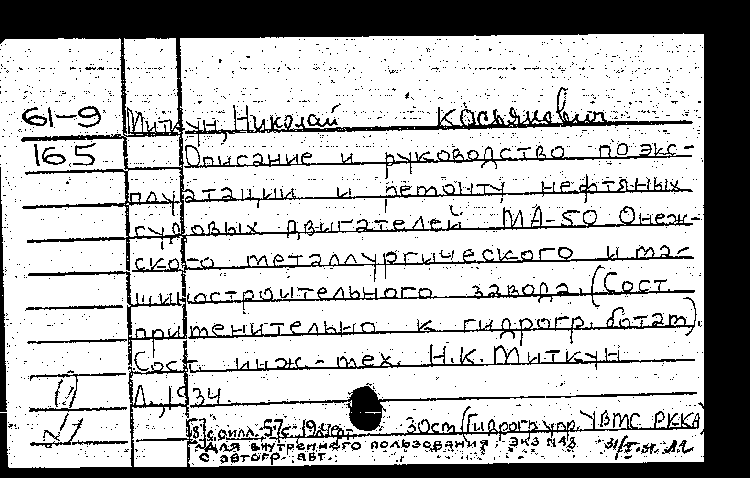 61-9 Миткун, Николай Косьянович
165 Описание и руководство по экс-
плуатации и ремонту нефтяных
судовых двигателей МА-50 Онеж-
ского металлургического и ма-
шиностроительного завода. (Сост.
применительно к гидрогр. ботам).
Сост. инж.-мех. Н.К. Миткун
Л., 1934.
с илл. 57с. 30см (Гидрогр. упр. УВМС РККА)
Для внутреннего пользования. Экз №
С автогр. авт.